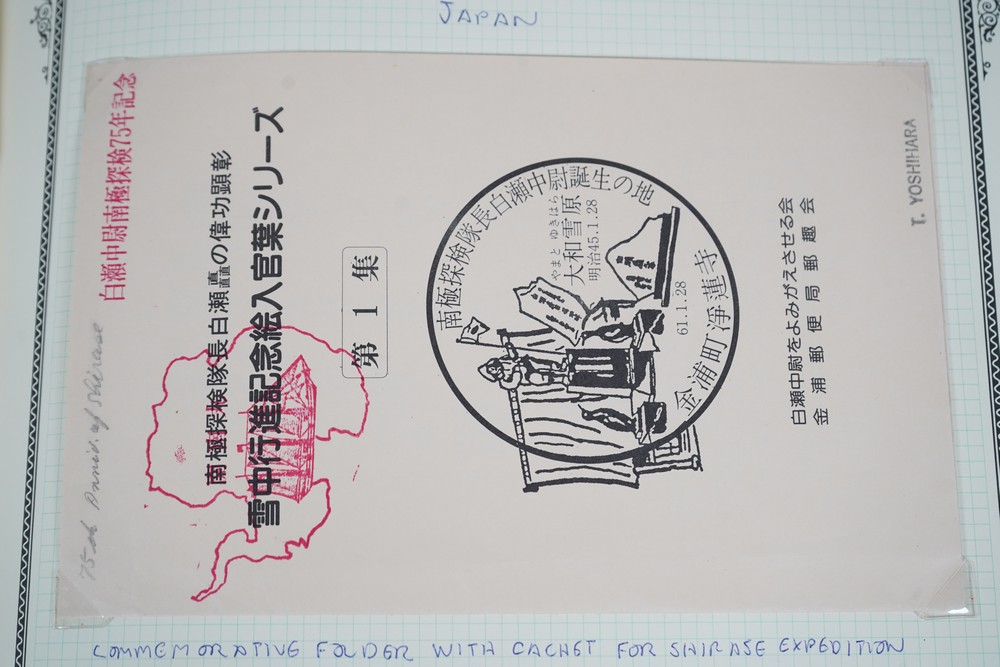 JAPAN
白瀬中尉南極探検75年記念
75th Anniv. of Shirase
南極探検隊長白瀬矗の偉功顕彰
雪中行進記念絵入官葉シリーズ
第1集
南極探検隊長白瀬中尉誕生の地
やまと ゆきはら
大和雪原
明治45.1.28
61.1.28
金浦町浄蓮寺
白瀬中尉をよみがえさせる会
金浦郵便局郵趣会
T. YOSHIHARA
COMMEMORATIVE FOLDER WITH CACHET FOR SHIRASE EXPEDITION